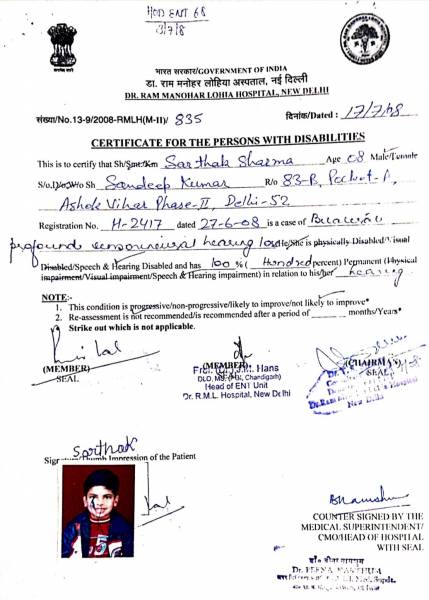 HOD ENT 68
भारत सरकार/GOVERNMENT OF INDIA
डा. राम मनोहर लोहिया अस्पताल, नई दिल्ली
DR. RAM MANOHAR LOHIA HOSPITAL, NEW DELHI
संख्या/No.13-9/2008-RMLH(M-II)/ 835 दिनांक/Dated : 17/7/08
CERTIFICATE FOR THE PERSONS WITH DISABILITIES
This is to certify that Sh/Smt/Km Sarthak Sharma Age 08 Male/Female
S/o,D/o,W/o Sh Sandeep Kumar R/o 83-B, Pocket-A,
Ashok Vihar Phase-II, Delhi-52
Registration No. H-2417 dated 27-6-08 is a case of Bilateral
profound sensorineural hearing loss He/She is physically Disabled/Visual
Disabled/Speech & Hearing Disabled and has 100 % ( Hundred percent) Permanent (Physical
impairment/Visual impairment/Speech & Hearing impairment) in relation to his/her hearing
NOTE:-
1. This condition is progressive/non-progressive/likely to improve/not likely to improve*
2. Re-assessment is not recommended/is recommended after a period of ______ months/Years*
Strike out which is not applicable.
(MEMBER)
SEAL
(MEMBER)
Hans
DLO, MS, (PGI, Chandigarh)
Head of ENT Unit
Dr. R.M.L. Hospital, New Delhi
(CHAIRMAN)
SEAL
New Delhi
Sarthak
Signature/Thumb Impression of the Patient
COUNTER SIGNED BY THE
MEDICAL SUPERINTENDENT/
CMO/HEAD OF HOSPITAL
WITH SEAL